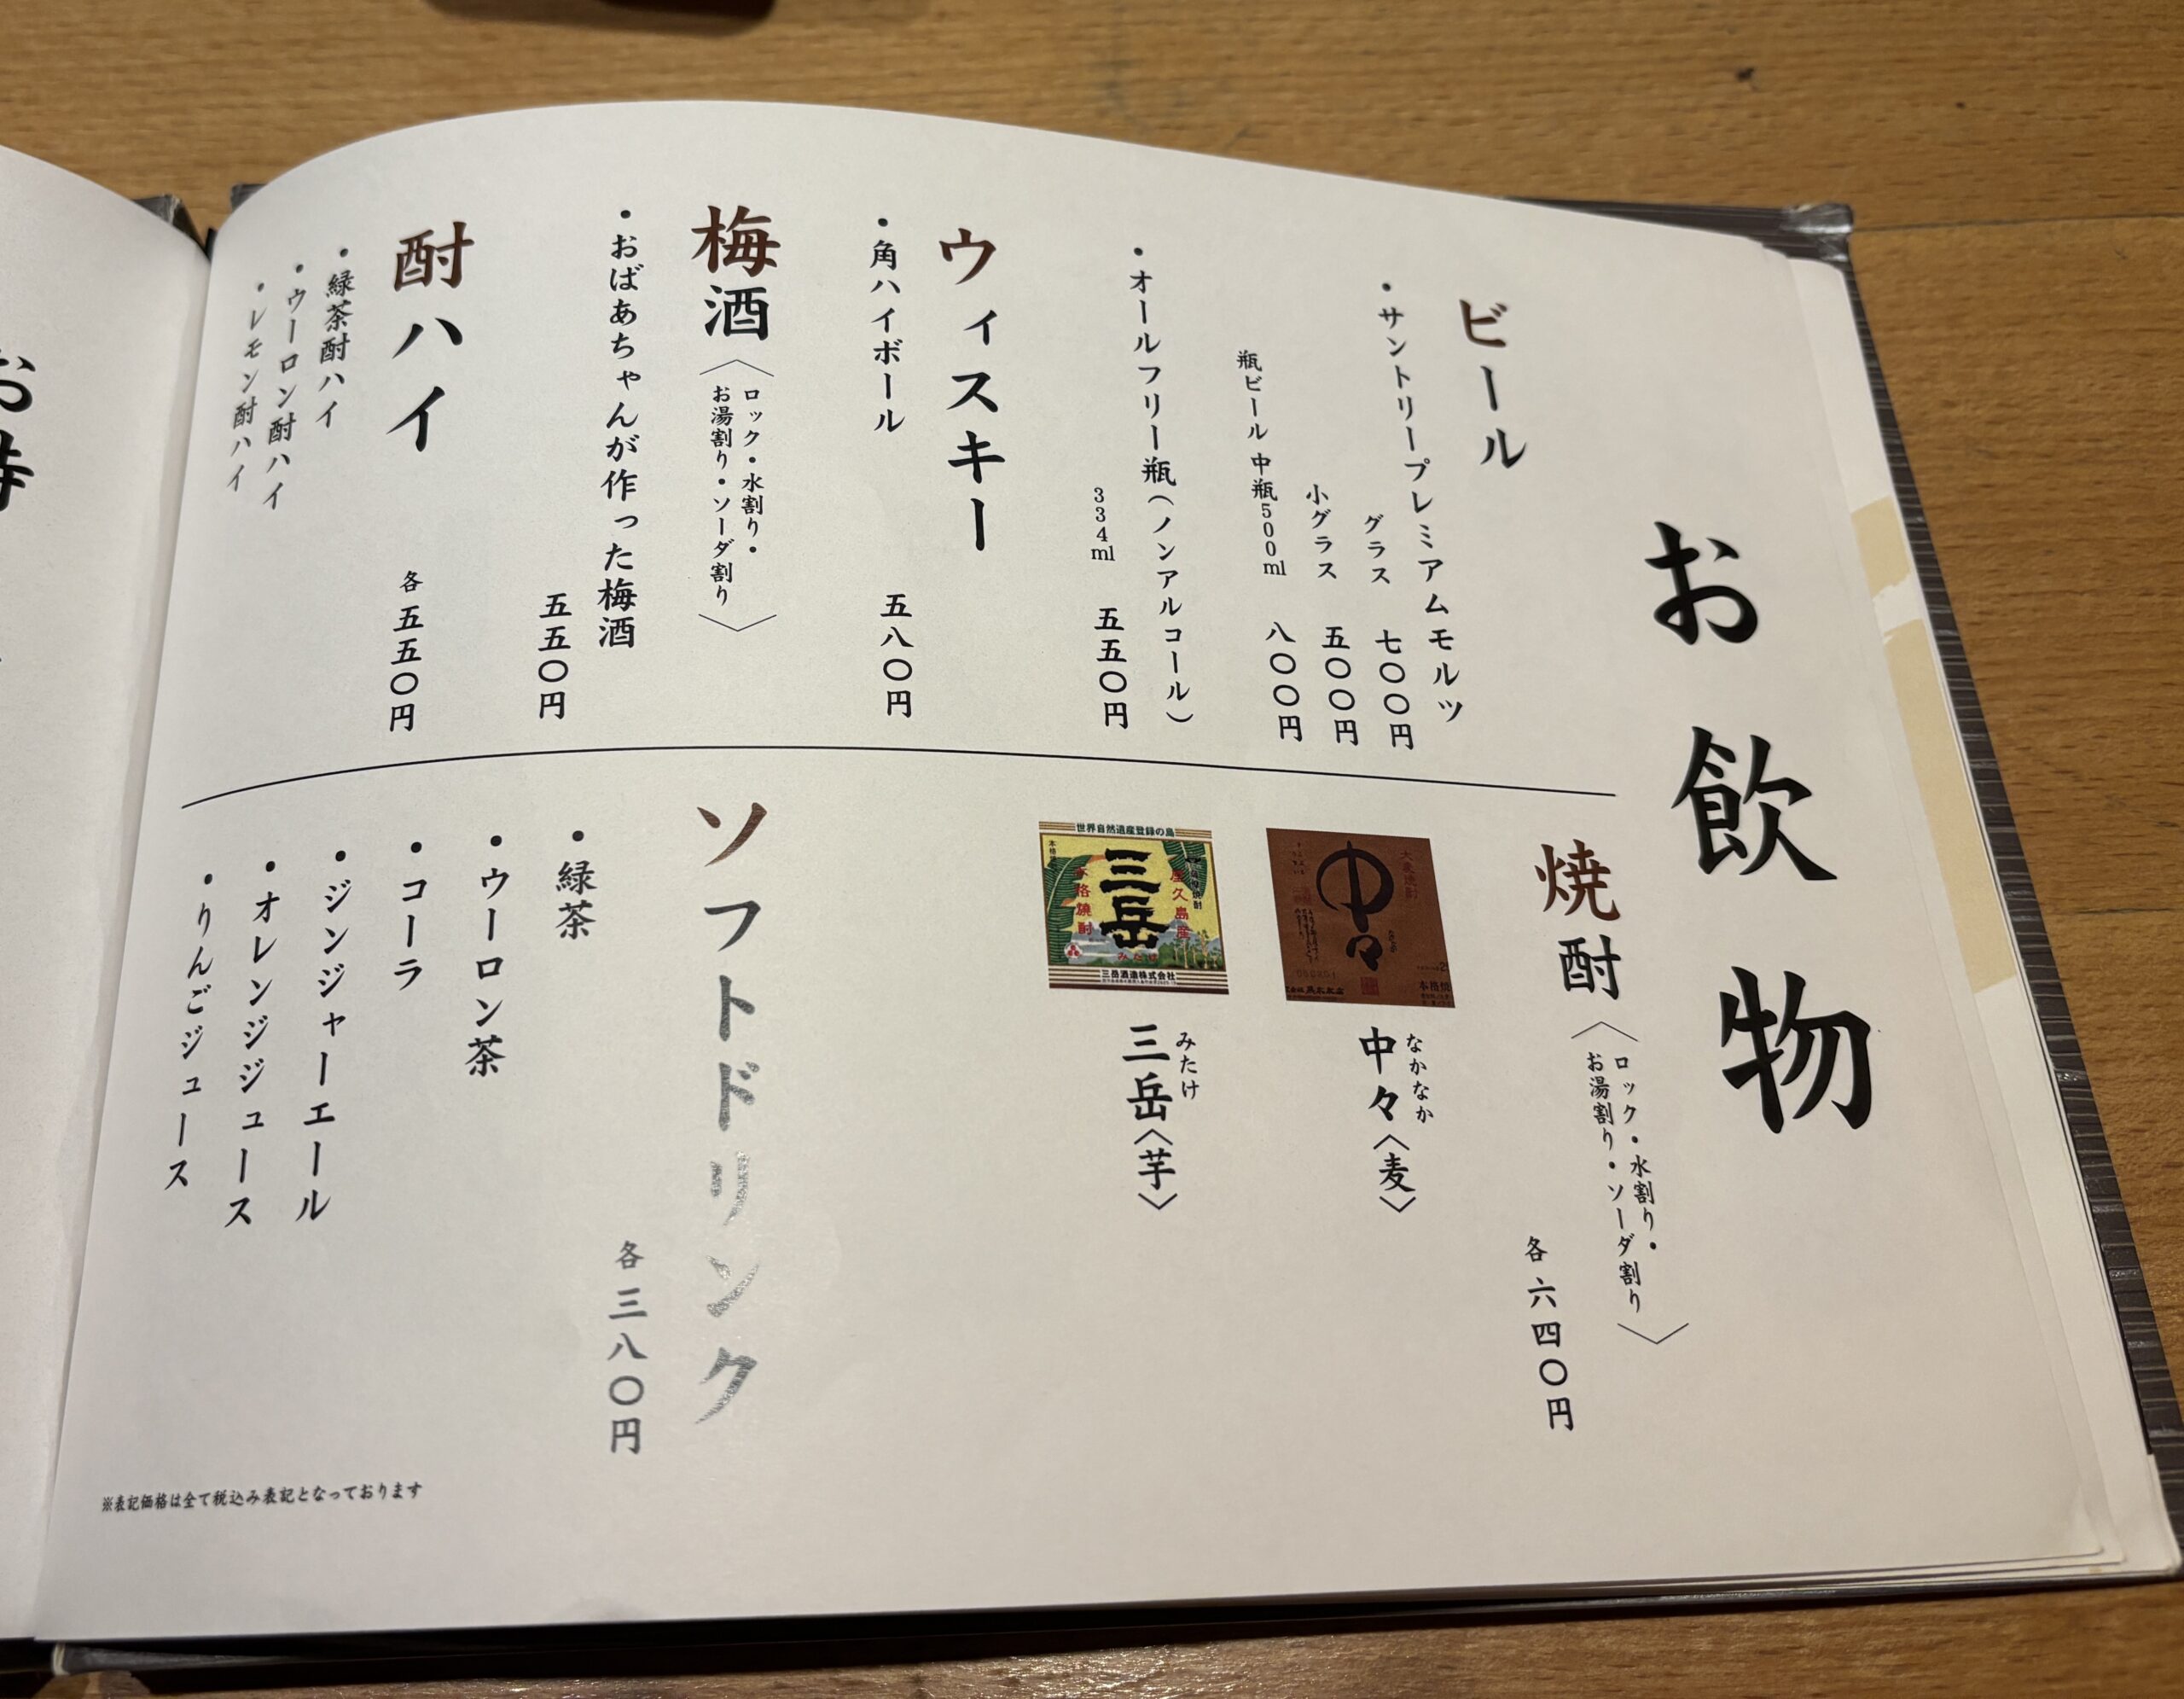 お飲物
ビール
・サントリープレミアムモルツ
グラス 七〇〇円
小グラス 五〇〇円
瓶ビール 中瓶500ml 八〇〇円
・オールフリー瓶(ノンアルコール)
334ml 五五〇円
ウィスキー
・角ハイボール
五八〇円
梅酒
〈ロック・水割り・
お湯割り・ソーダ割り〉
・おばあちゃんが作った梅酒
五五〇円
酎ハイ
各 五五〇円
・緑茶酎ハイ
・ウーロン酎ハイ
・レモン酎ハイ
焼酎
〈ロック・水割り・
お湯割り・ソーダ割り〉
各 六四〇円
大麦焼酎
中々
本格焼
なかなか
中々〈麦〉
世界自然遺産登録の島
屋久島産
三岳
みたけ
本格焼酎
三岳酒造株式会社
みたけ
三岳〈芋〉
ソフトドリンク
各 三八〇円
・緑茶
・ウーロン茶
・コーラ
・ジンジャーエール
・オレンジジュース
・りんごジュース
※表記価格は全て税込み表記となっております